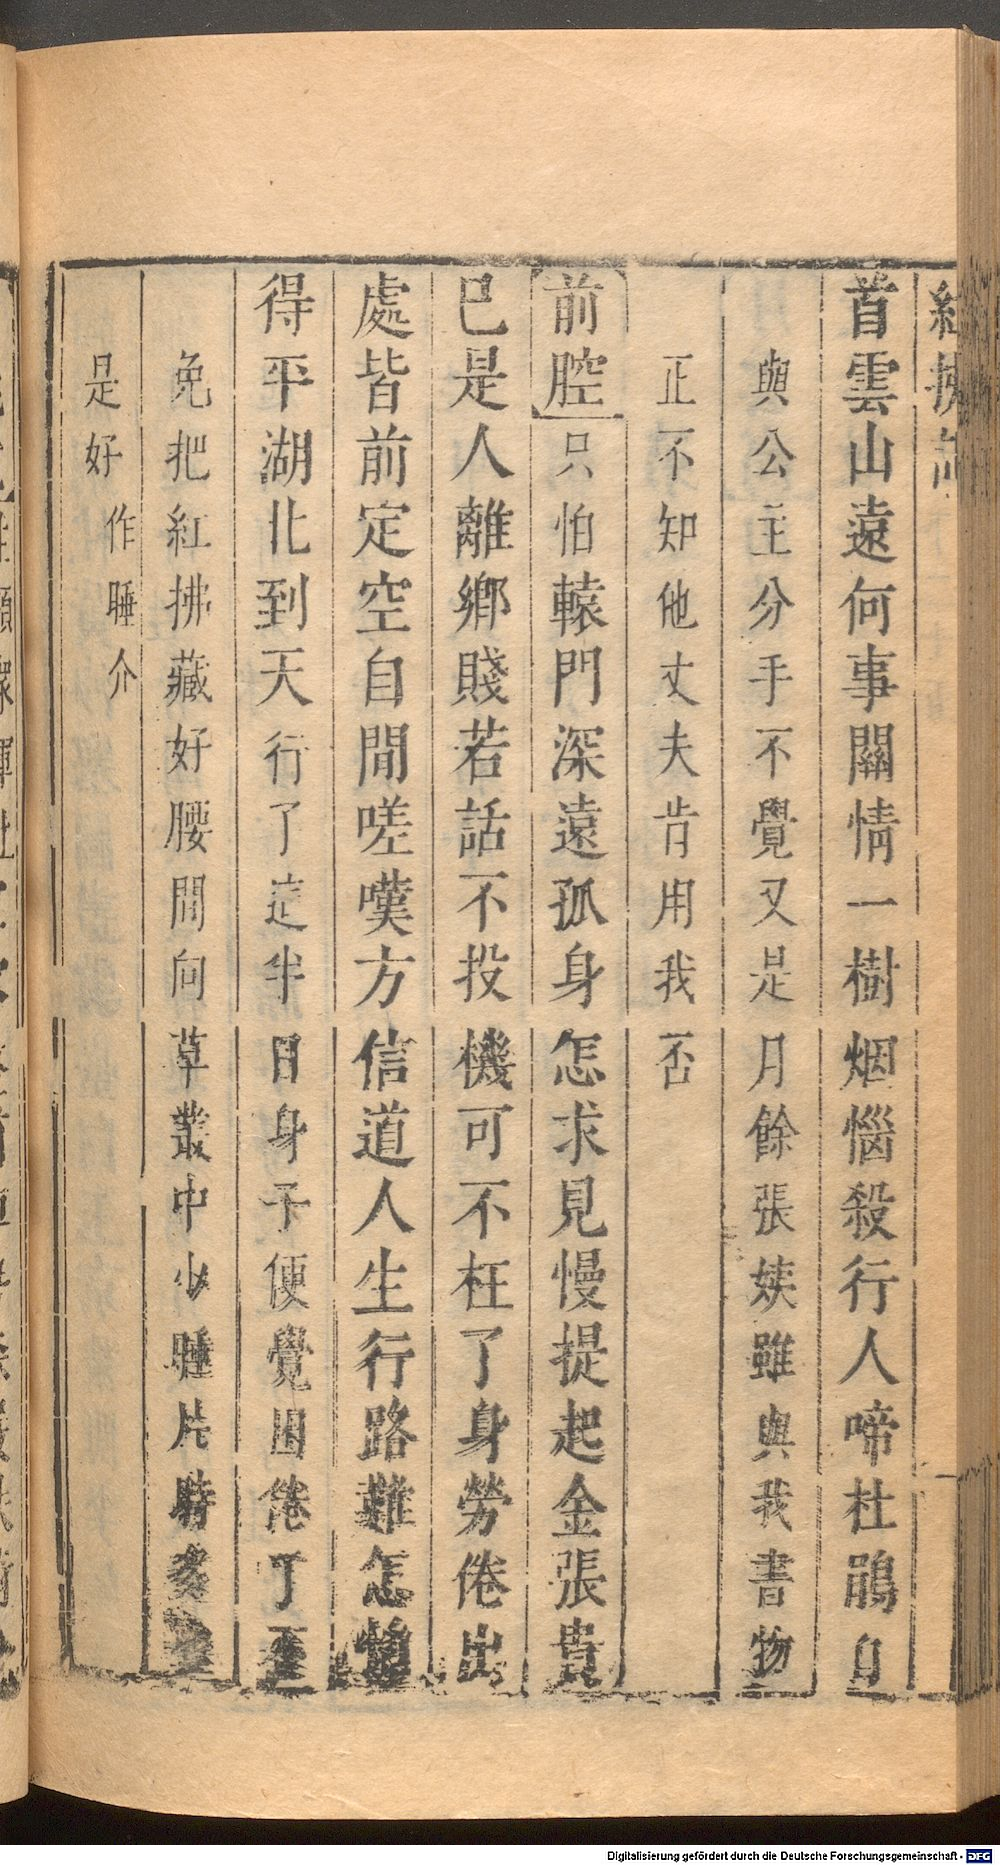 紅拂記
首雲山遠何事關情一樹烟惱殺行人啼杜鵑自
與公主分手不覺又是月餘張姨雖與我書物
正不知他丈夫肯用我否
前腔只怕轅門深遠孤身怎求見慢提起金張貴
已是人離鄉賤若話不投機可不枉了身勞倦出
處皆前定空自閒嗟嘆方信道人生行路難怎
得平湖北到天行了這半日身子便覺困倦了不
免把紅拂藏好腰間向草叢中少睡片時多
是好作睡介
Digitalisierung gefördert durch die Deutsche Forschungsgemeinschaft - DFG